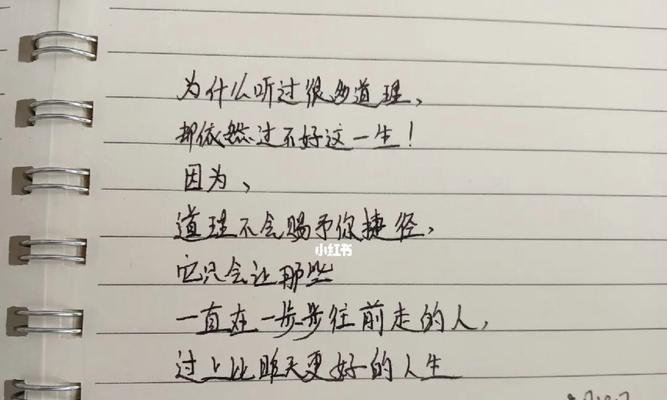 为什么听过很多道理，
却依然过不好这一生！
因为，
道理不会赐予你捷径，
小红书
它只会让那些
一直在一步步往前走的人，
过上比昨天更好的人生